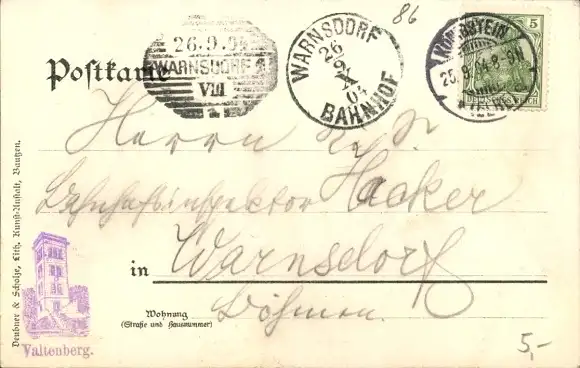 86
26.9.04
WARNSDORF 1
VIII
WARNSDORF
26
9
X
04
BAHNHOF
5
25.9.04.8-9N
REICH
Postkarte
Herrn
Bahnhofsinspektor Hacker
in Warnsdorf
Böhmen.
Wohnung
(Straße und Hausnummer)
5,-
Deubner & Scholze, Lith. Kunst-Anstalt, Bautzen.
Valtenberg.